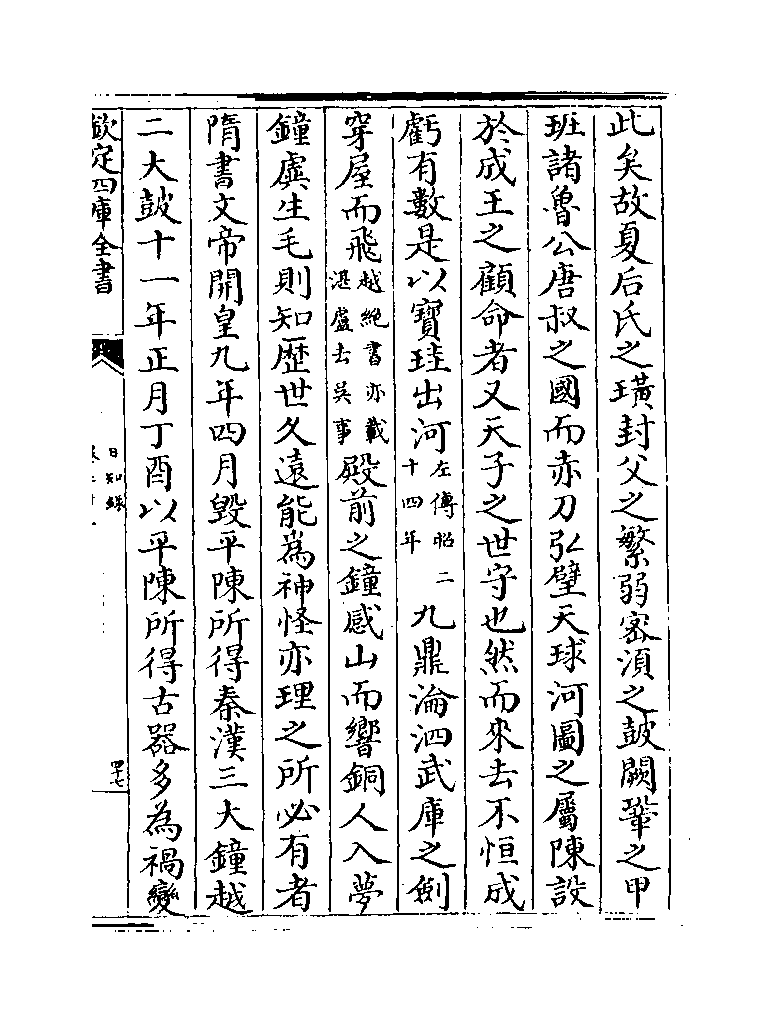 此矣故夏后氏之璜封父之繁弱密須之鼓闕鞏之甲
班諸魯公唐叔之國而赤刀弘璧天球河圖之屬陳設
於成王之顧命者又天子之世守也然而來去不恒成
虧有數是以寶珪出河左傳昭二十四年九鼎淪泗武庫之劍
穿屋而飛越絶書亦載湛盧去吳事殿前之鐘感山而響銅人入夢
鐘虡生毛則知歷世久遠能為神怪亦理之所必有者
隋書文帝開皇九年四月毀平陳所得秦漢三大鐘越
二大鼓十一年正月丁酉以平陳所得古器多為禍變
欽定四庫全書
日知錄
四十七